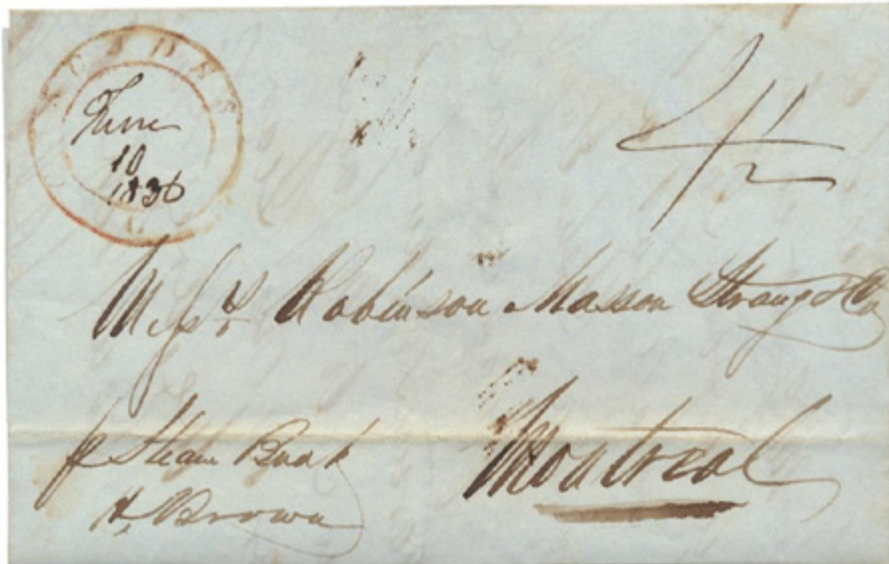 June
10
1836
4/2
Messrs Robinson Masson Strang & Co
Montreal
Steam Boat
H. Brown